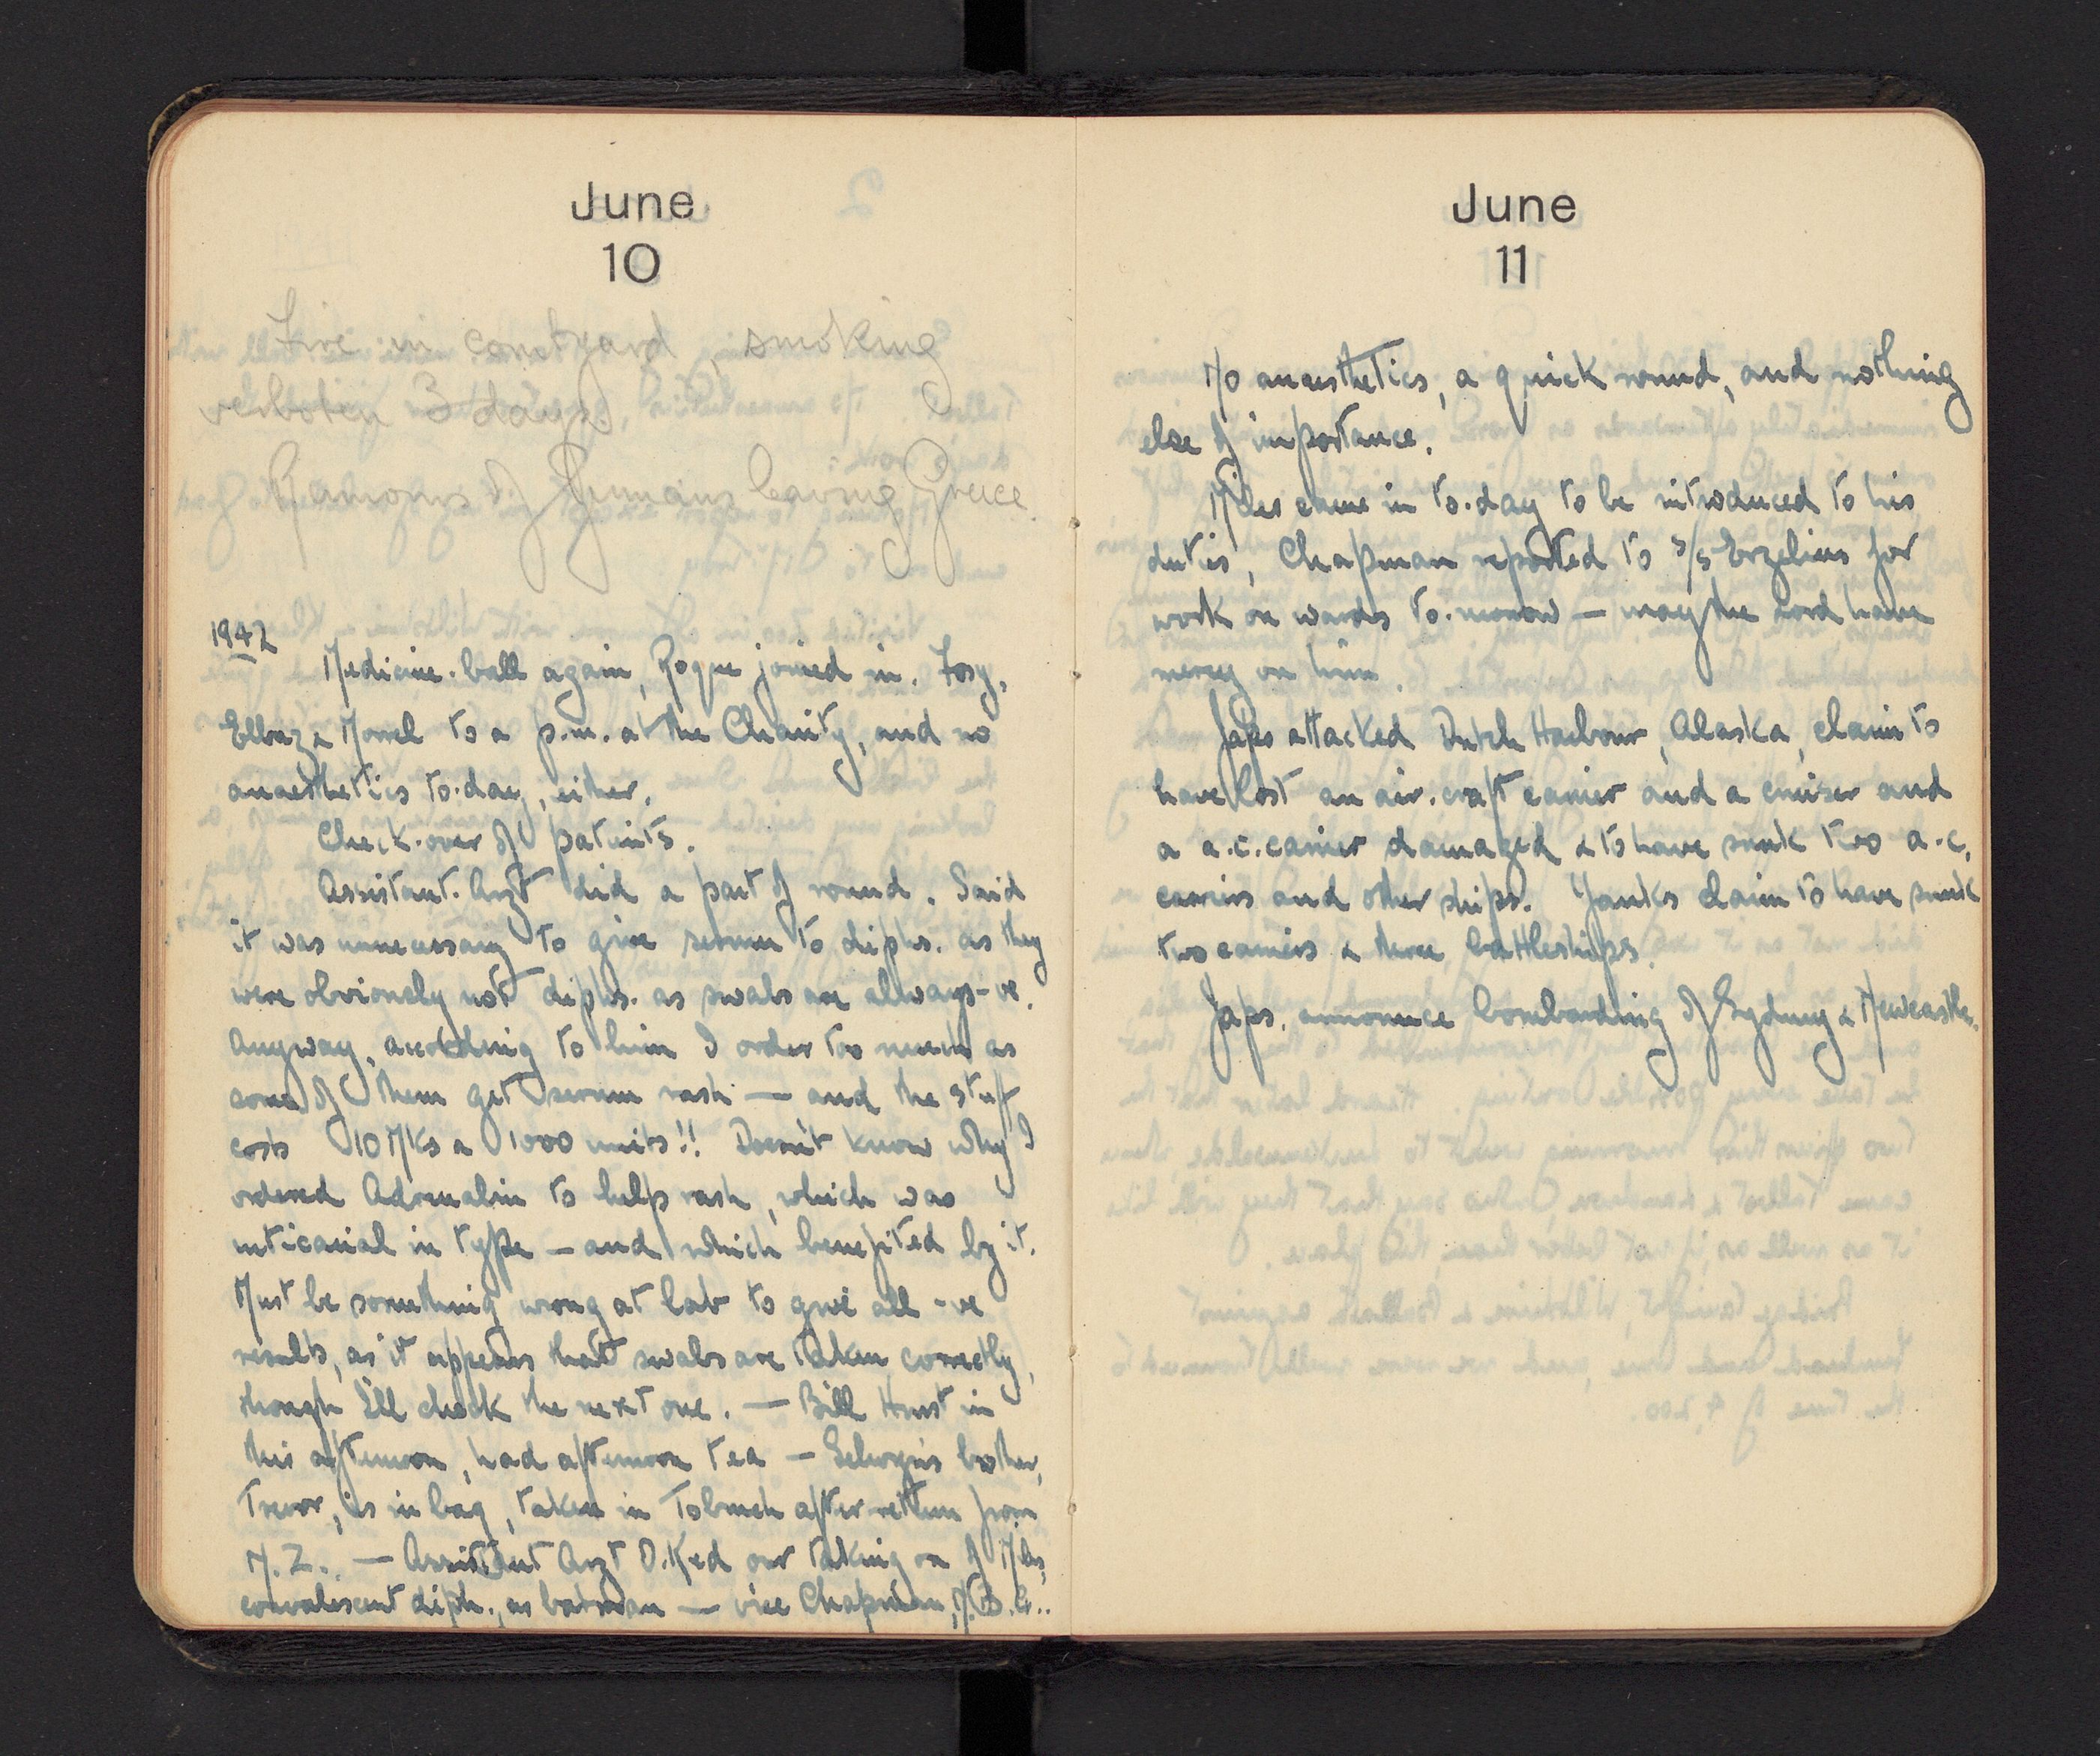 June
10
Fire in courtyard, smoking
verboten 3 days.
Rumours of Germans leaving Greece.
1942
Medicine-ball again, Roque joined in.
Elbaz & Morrel to a p.m. at the Charity, and no
anaesthetics to-day, either.
Check-over of patients.
Assistant-Arzt did a part of round. Said
it was unnecessary to give serum to diphs. as they
were obviously not diphs. as swabs are always -ve.
Anyway, according to him I order too much as
some of them get serum rash — and the stuff
costs 10 Mks a 1000 units!! Doesn't know why I
ordered Adrenalin to help rash, which was
urticarial in type — and which benefited by it.
Must be something wrong at lab to give all -ve
results, as it appears that swabs are taken correctly,
though I'll check the next one. — Bill Hurst in
this afternoon, had afternoon tea — Selwyn's brother,
Trevor, is in bag, taken in Tobruch after return from
N.Z.. — Assistant Arzt O.Ked our taking on of Miles,
convalescent diph., as batman — vice Chapman, N.B.G..
June
11
No anaesthetics, a quick round, and nothing
else of importance.
Miles came in to-day to be introduced to his
duties, Chapman reported to for
work on wards to-morrow — may the Lord have
mercy on him.
Japs attacked Dutch Harbour, Alaska, claim to
have lost an air-craft carrier and a cruiser and
a a.c. carrier damaged & to have sunk two a.c.
carriers and other ships. Yanks claim to have sunk
two carriers & three battleships.
Japs. announce bombarding of Sydney & Newcastle.